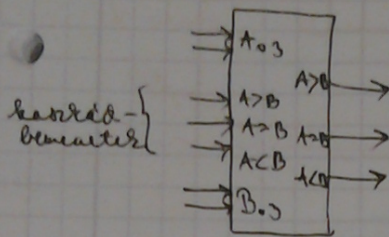 A0..3
A>B
kaszkád-
bemenetek
A>B
A=B
A=B
A<B
A<B
B0..3